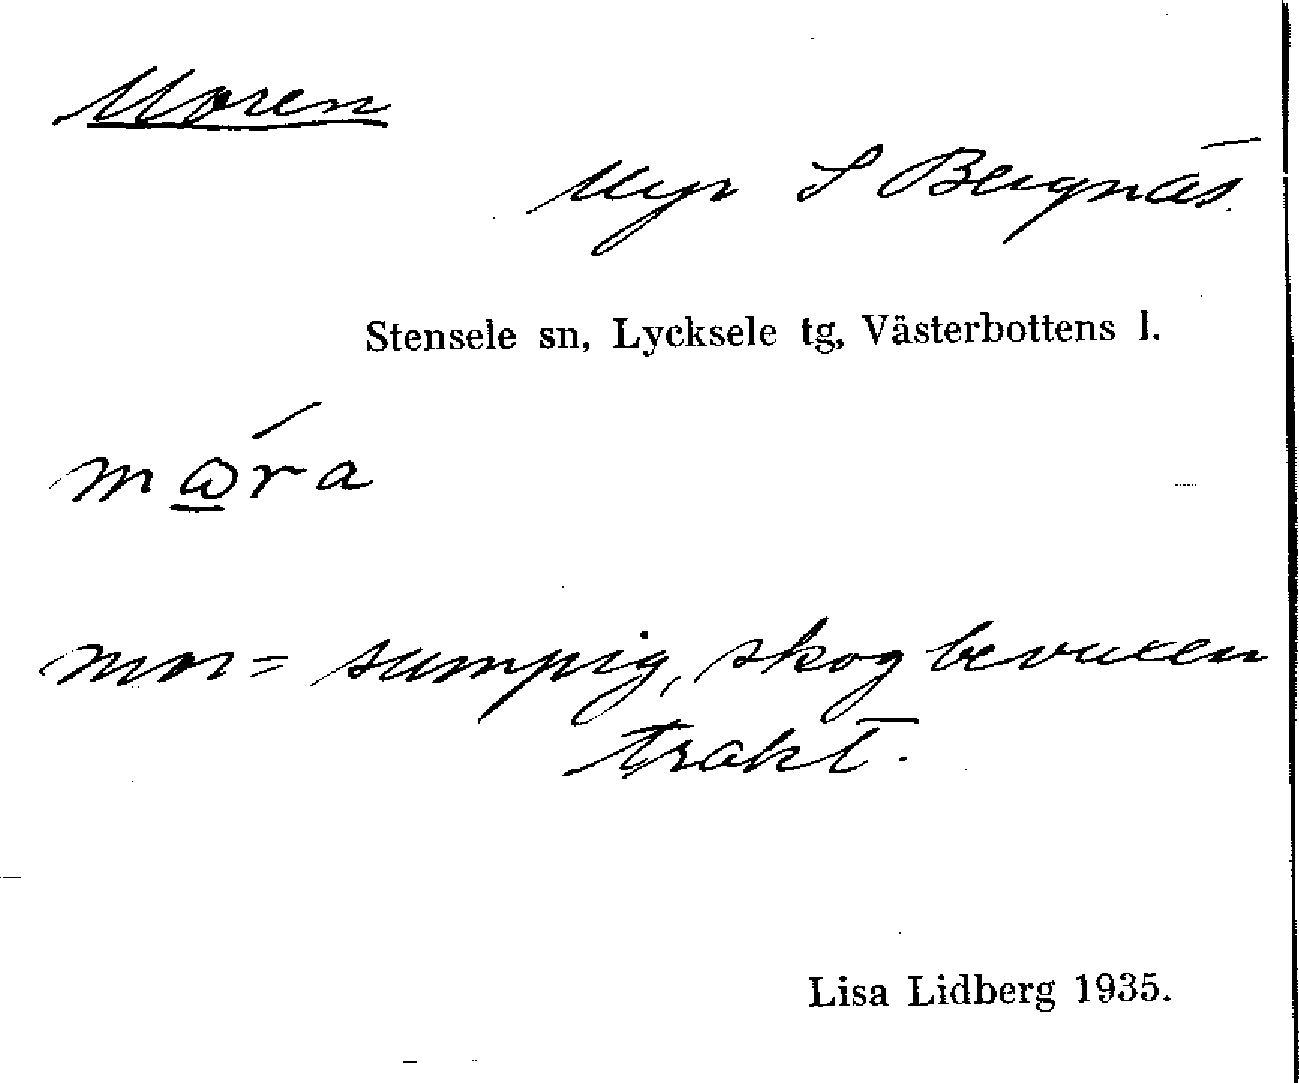 Moren
Myr S Bergnäs.
Stensele sn, Lycksele tg, Västerbottens l.
mώ̲ra
mor = sumpig, skogbevuxen
trakt.
Lisa Lidberg 1935.